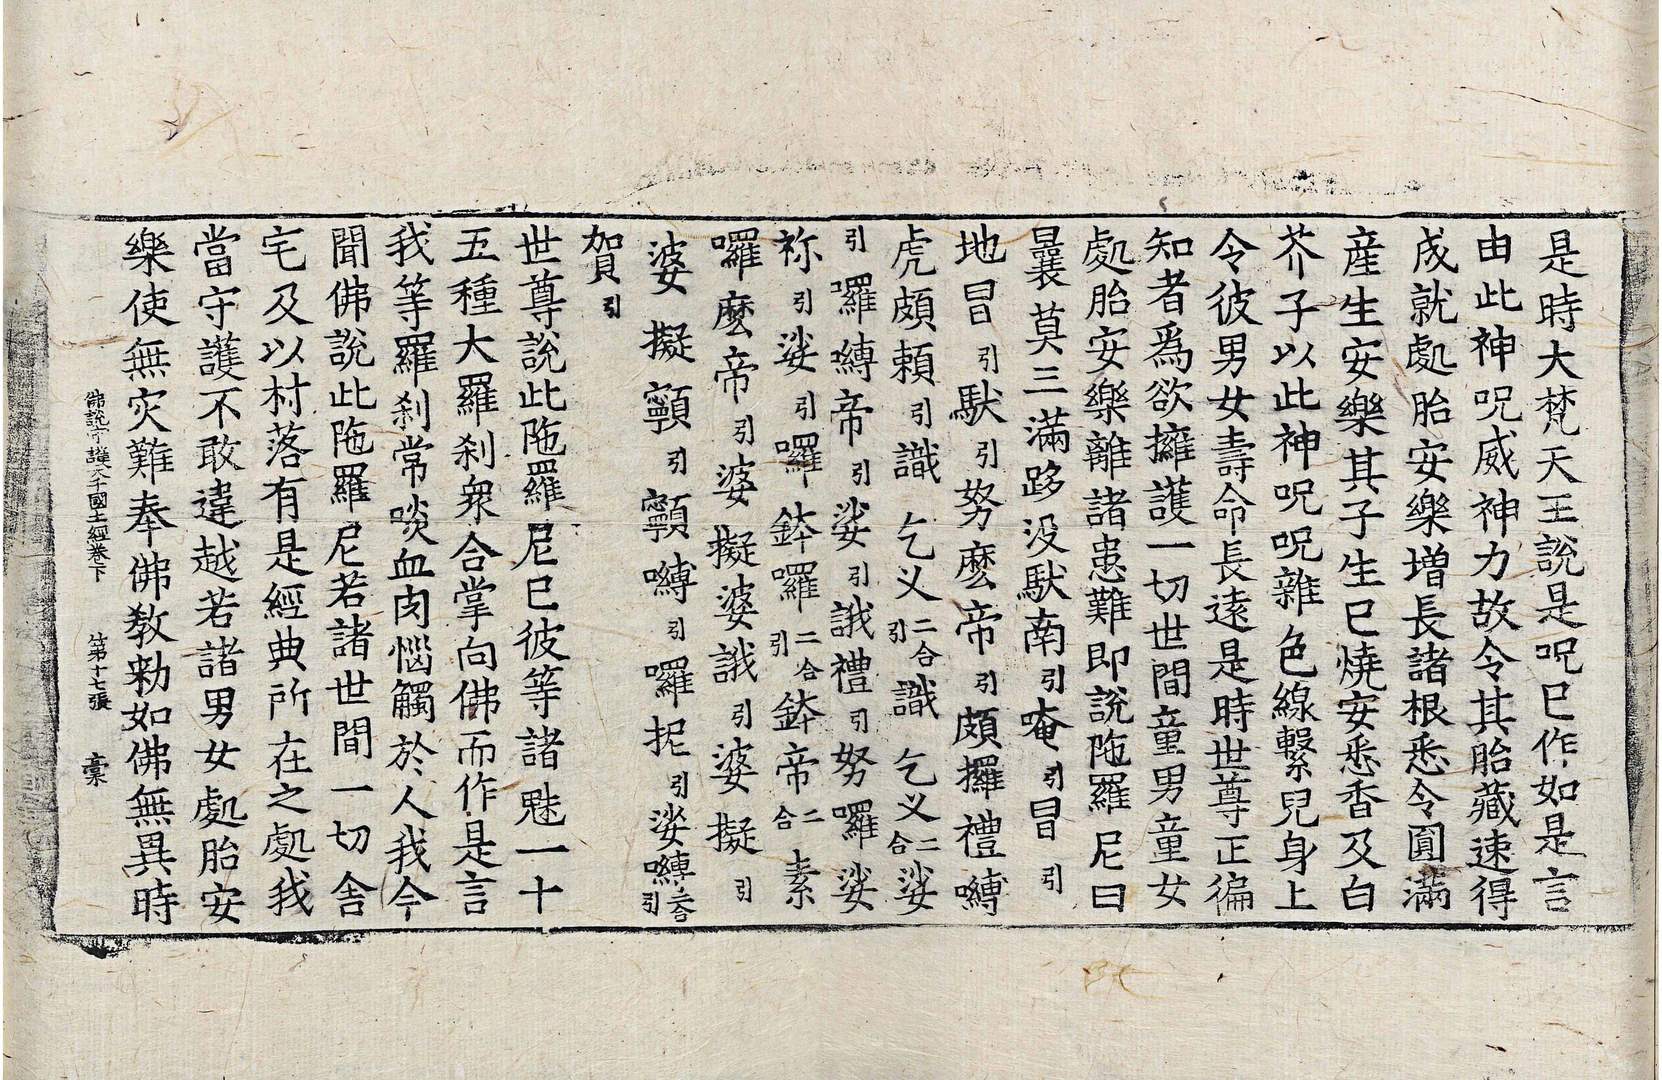 是時大梵天王說是呪巳作如是言
由此神呪威神力故令其胎藏速得
成就處胎安樂增長諸根悉令圓滿
産生安樂其子生巳燒安悉香及白
芥子以此神呪呪雜色線繫兒身上
令彼男女壽命長遠是時世尊正徧
知者爲欲擁護一切世間童男童女
處胎安樂離諸患難即說陁羅尼曰
曩莫三滿跢没馱南引唵引冒引
地冒引馱引努麽帝引頗攞禮嚩
虎頗頼引識乞义二合引識乞义二合娑
引囉嚩帝引娑引誐禮引努囉娑
祢引娑引囉鉢囉二合引鉢帝二合素
囉麽帝引婆擬婆誐引婆擬引
婆擬顙引顙嚩引囉抳引娑嚩二合引
賀引
世尊說此陁羅尼巳彼等諸魅一十
五種大羅刹衆合掌向佛而作是言
我等羅刹常啖血肉惱觸於人我今
聞佛說此陁羅尼若諸世間一切舍
宅及以村落有是經典所在之處我
當守護不敢違越若諸男女處胎安
樂使無灾難奉佛教勑如佛無異時
佛說守護大千國土經卷下 第十七張 槀